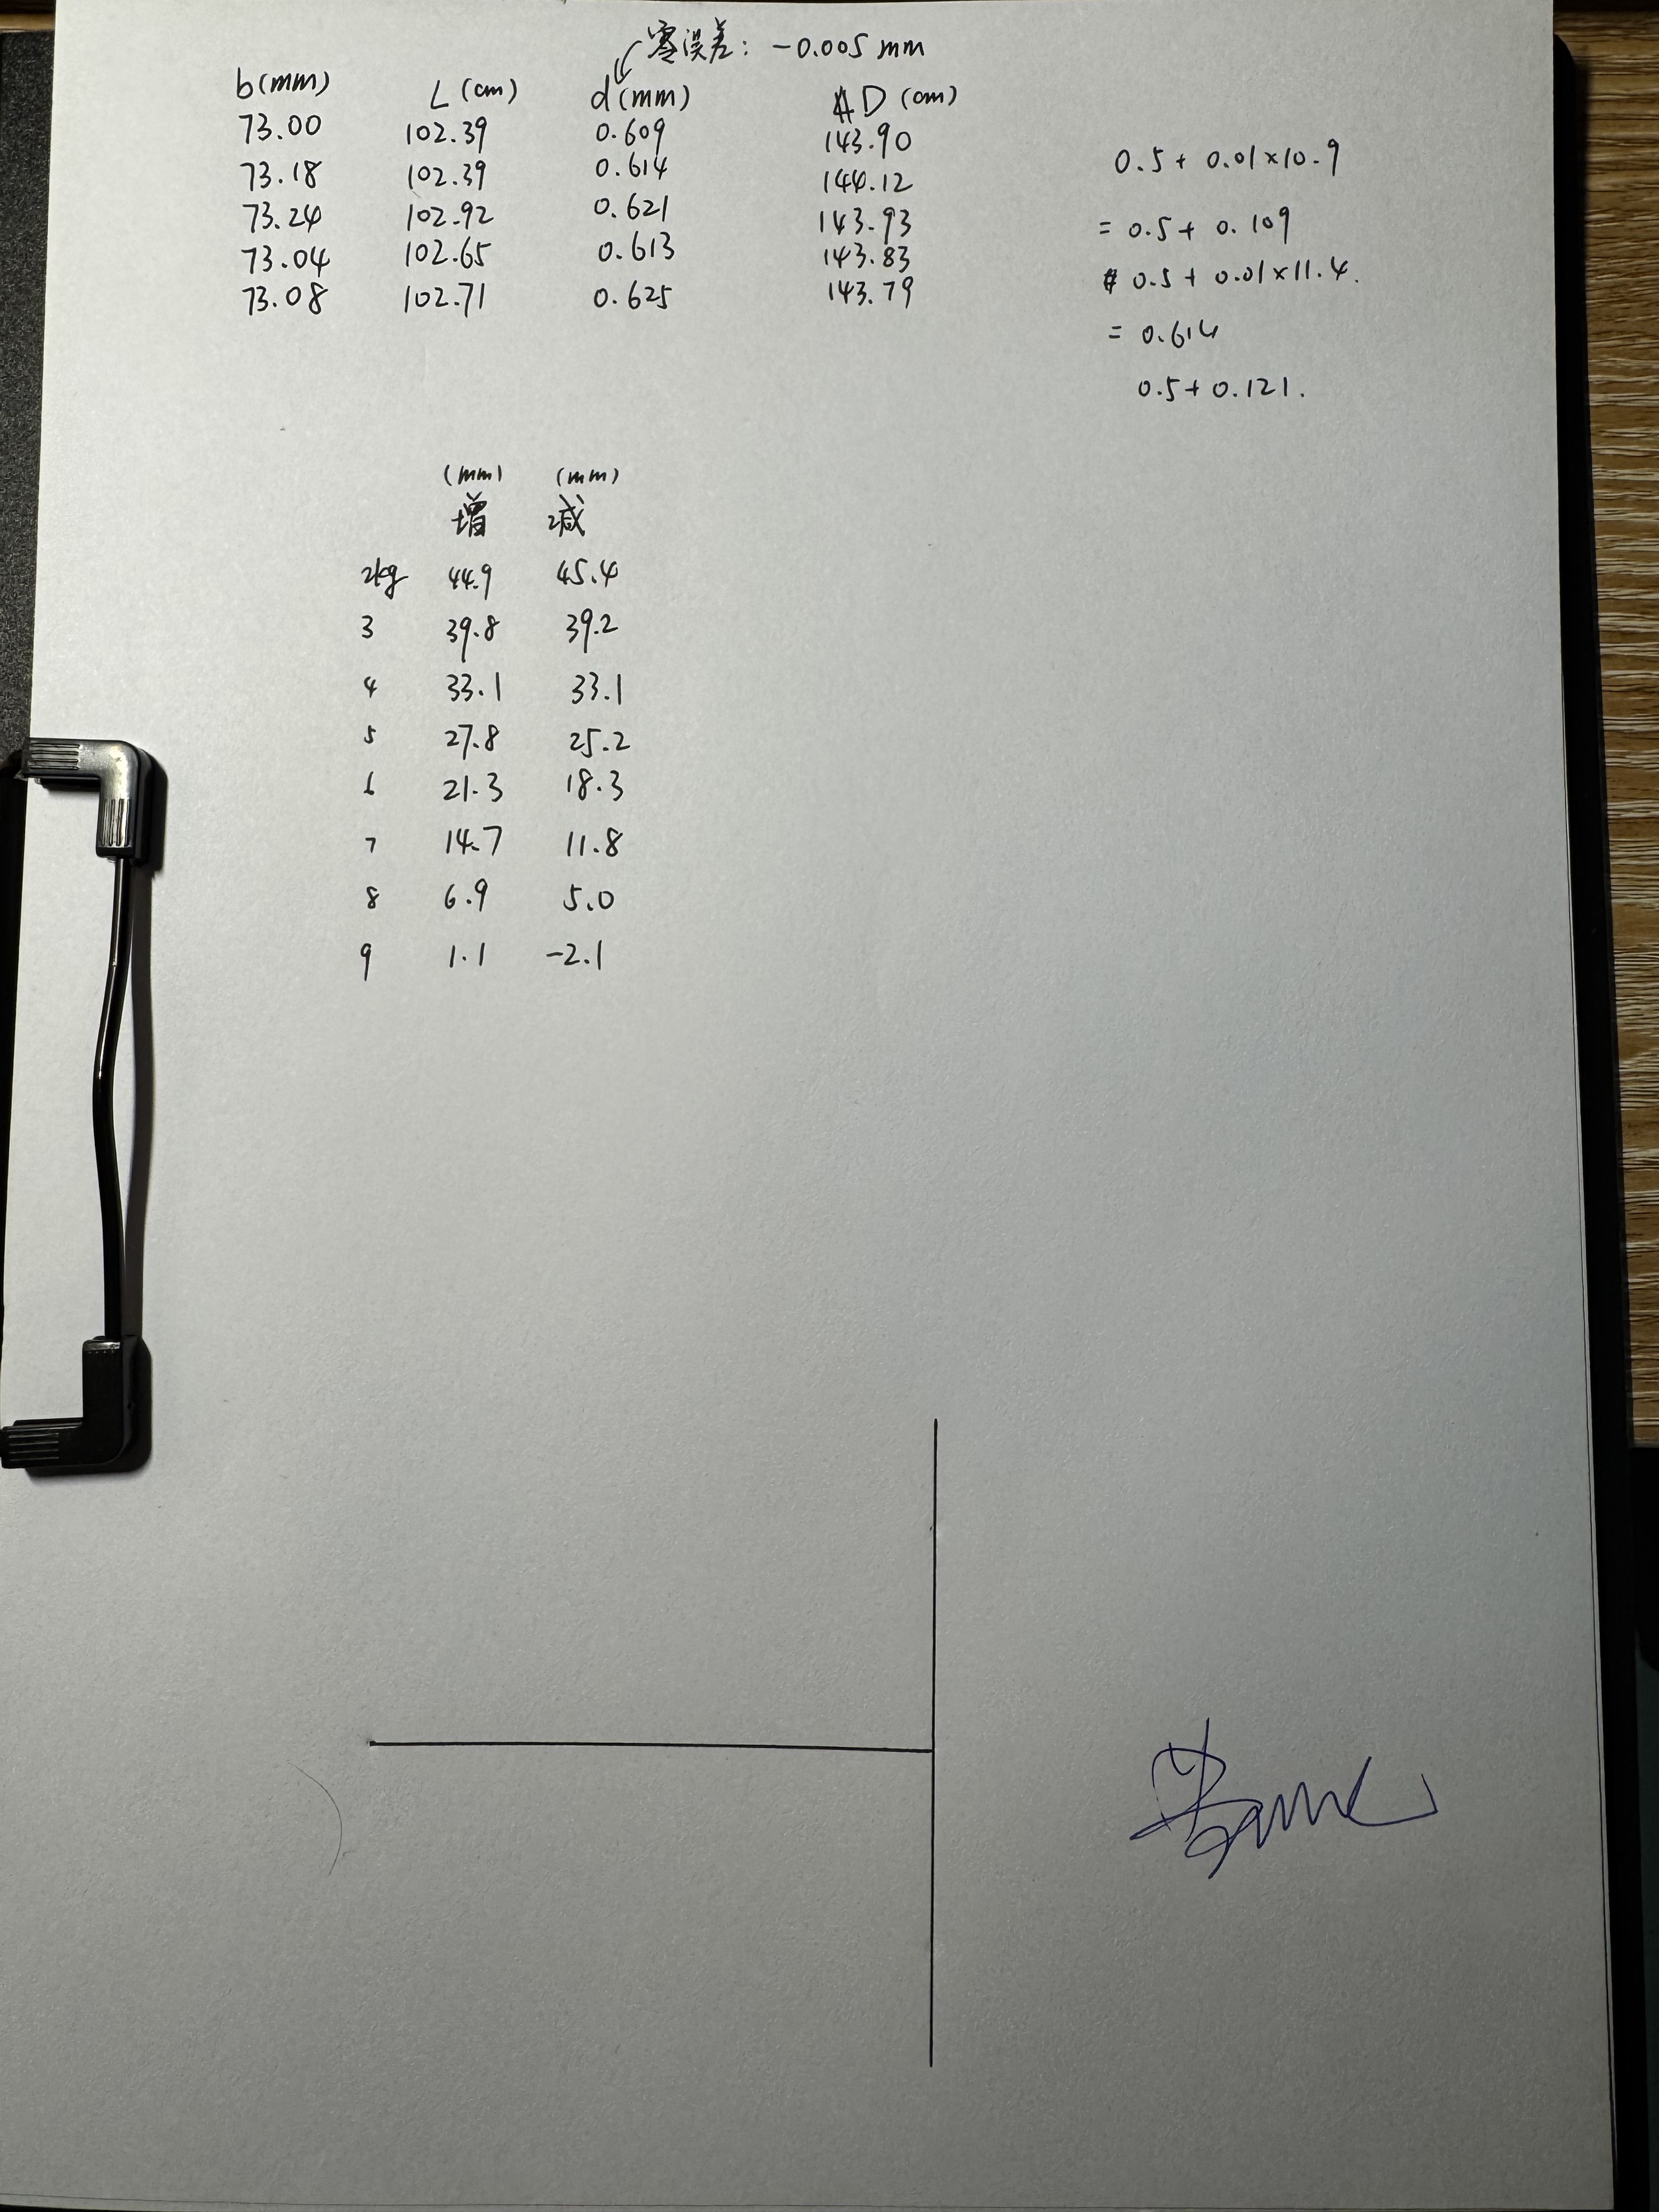 零误差: -0.005 mm
b(mm) L(cm) d(mm) D(cm)
73.00 102.39 0.609 143.90
73.18 102.39 0.614 144.12
73.24 102.92 0.621 143.93
73.04 102.65 0.613 143.83
73.08 102.71 0.625 143.79
0.5 + 0.01×10.9
= 0.5 + 0.109
0.5 + 0.01×11.4.
= 0.614
0.5 + 0.121.
(mm) (mm)
增 减
2kg 44.9 45.4
3 39.8 39.2
4 33.1 33.1
5 27.8 25.2
6 21.3 18.3
7 14.7 11.8
8 6.9 5.0
9 1.1 -2.1